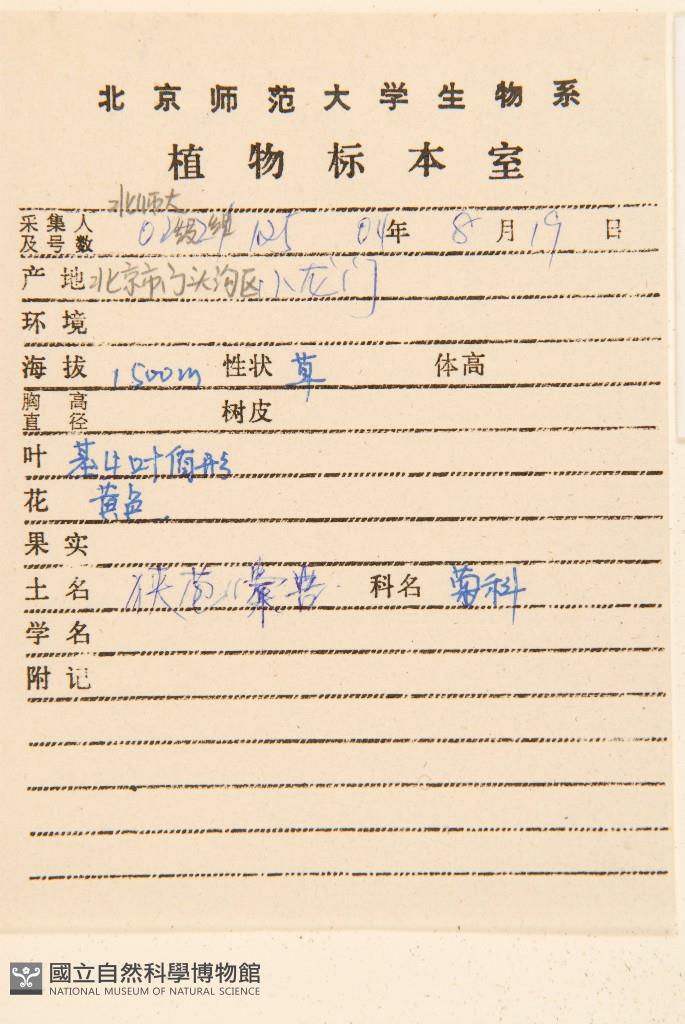 北京师范大学生物系
植物标本室
北师大
采集人及号数 02级2组 125 04年 8月19日
产地 北京市门头沟区小龙门
环境
海拔 1500m 性状 草 体高
胸高直径 树皮
叶 基生叶盾形
花 黄色
果实
土名 狭苞橐吾 科名 菊科
学名
附记
國立自然科學博物館
NATIONAL MUSEUM OF NATURAL SCIENCE